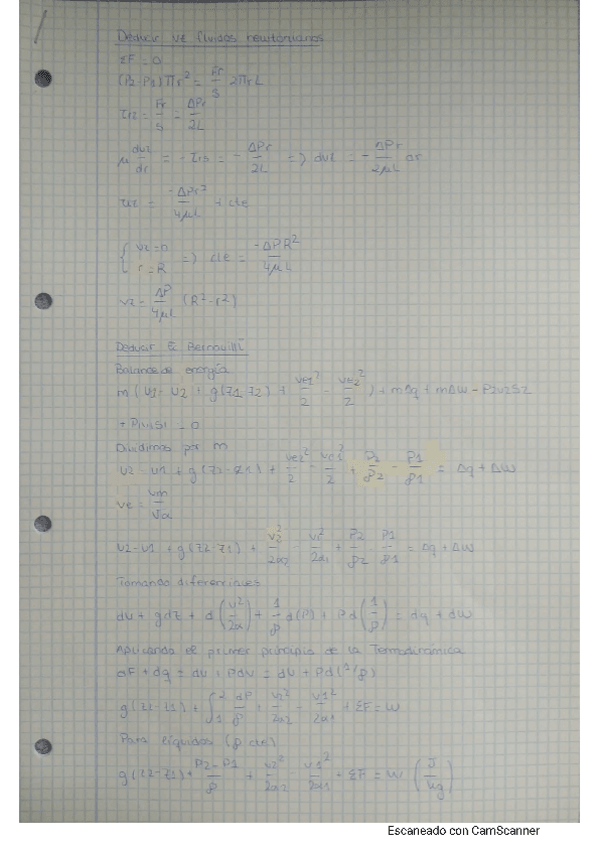 Deducir vz fluidos newtonianos
ΣF = 0
(P2-P1)πr² = Fr/S 2πrL
τrz = Fr/S = ΔPr/2L
μ dvz/dr = -τrz = - ΔPr/2L => dvz = - ΔPr/2μL dr
vz = -ΔPr²/4μL + cte
{ vz=0 r=R => cte = -ΔPR²/4μL
vz = ΔP/4μL (R²-r²)
Deducir E Bernoulli
Balance de energía
m(U1-U2 + g(z1-z2) + ve1²/2 - ve2²/2) + mΔq + mΔW - P2v2S2
+ P1v1S1 = 0
Dividimos por m
U2-U1 + g(z2-z1) + ve2²/2 - ve1²/2 + P2/ρ2 - P1/ρ1 = Δq + ΔW
ve = vm/√α
U2-U1 + g(z2-z1) + v2²/2α2 - v1²/2α1 + P2/ρ2 - P1/ρ1 = Δq + ΔW
Tomando diferenciales
du + gdz + d(v²/2α) + 1/ρ d(P) + Pd(1/ρ) = dq + dW
Aplicando el primer principio de la Termodinámica
dF + dq = du + Pdv = du + Pd(1/ρ)
g(z2-z1) + ∫1 2 dP/ρ + v2²/2α2 - v1²/2α1 + ΣF = W
Para líquidos (ρ cte)
g(z2-z1) + P2-P1/ρ + v2²/2α2 - v1²/2α1 + ΣF = W (J/kg)
Escaneado con CamScanner